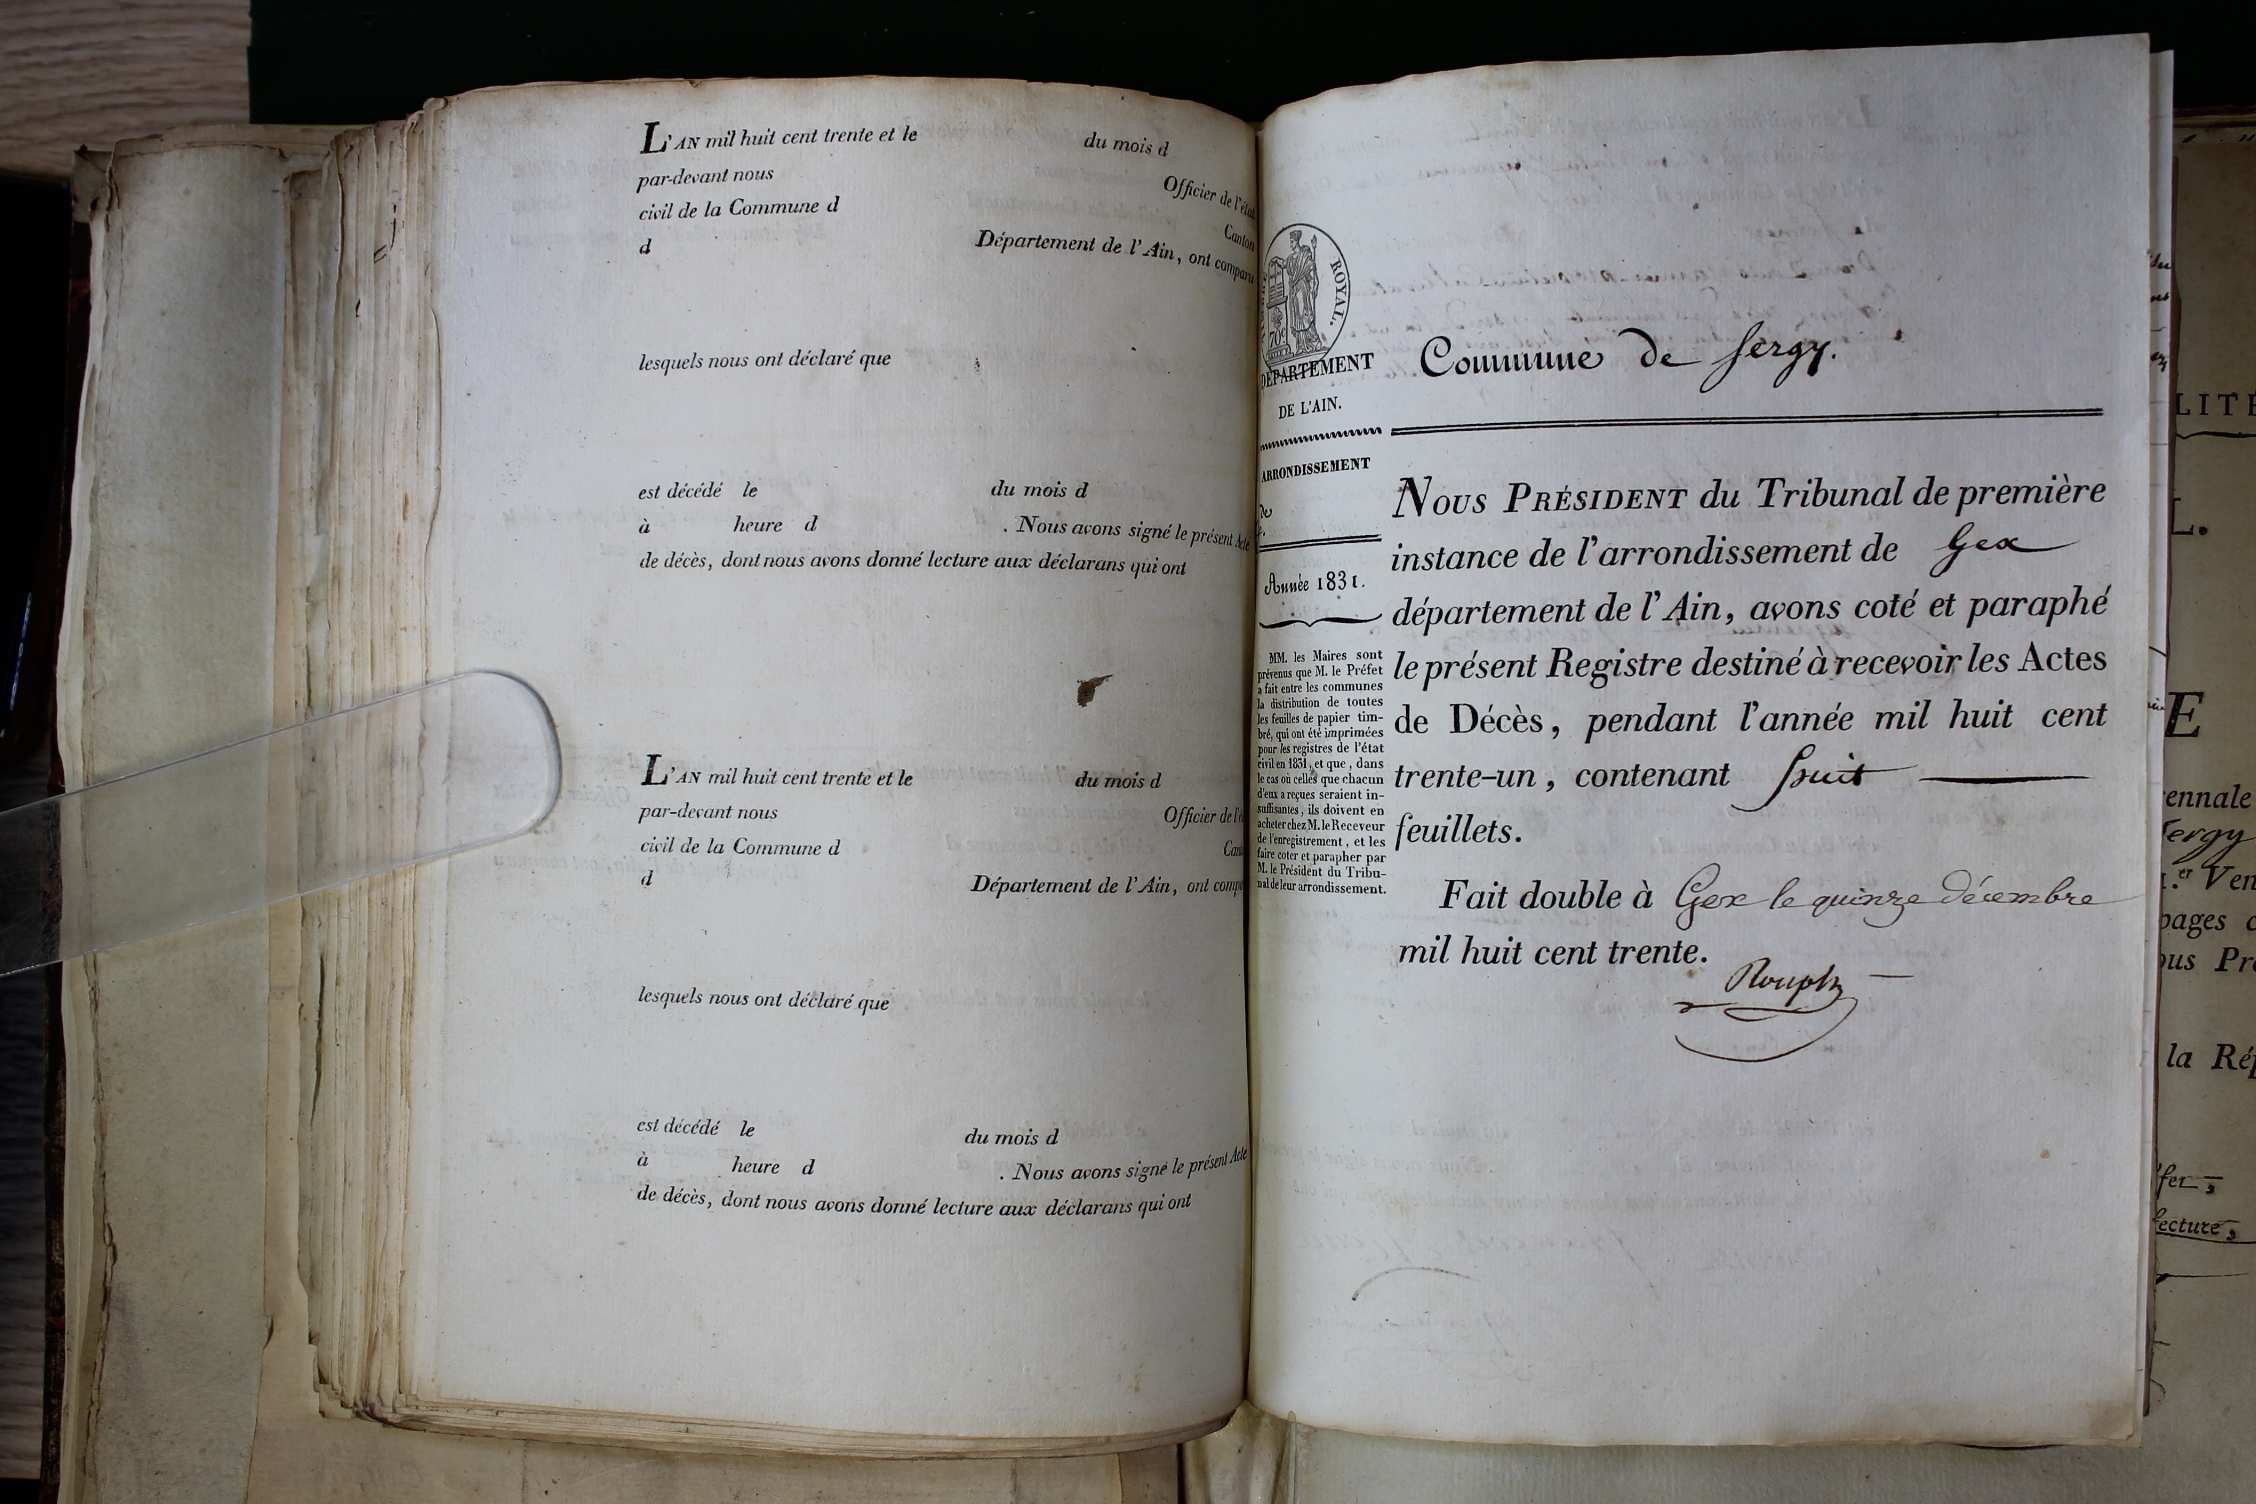 L'AN mil huit cent trente et le du mois d
par-devant nous Officier de l'état
civil de la Commune d Canton
d Département de l'Ain, ont comparu
lesquels nous ont déclaré que
est décédé le du mois d
à heure d . Nous avons signé le présent Acte
de décès, dont nous avons donné lecture aux déclarans qui ont
L'AN mil huit cent trente et le du mois d
par-devant nous Officier de l'é
civil de la Commune d Can
d Département de l'Ain, ont comp
lesquels nous ont déclaré que
est décédé le du mois d
à heure d . Nous avons signé le présent Acte
de décès, dont nous avons donné lecture aux déclarans qui ont
ROYAL.
70c
DÉPARTEMENT
DE L'AIN.
ARRONDISSEMENT
de
Année 1831.
MM. les Maires sont
prévenus que M. le Préfet
a fait entre les communes
la distribution de toutes
les feuilles de papier tim-
bré, qui ont été imprimées
pour les registres de l'état
civil en 1831, et que, dans
le cas où celles que chacun
d'eux a reçues seraient in-
suffisantes, ils doivent en
acheter chez M. le Receveur
de l'enregistrement, et les
faire coter et parapher par
M. le Président du Tribu-
nal de leur arrondissement.
Commune de Sergy.
NOUS PRÉSIDENT du Tribunal de première
instance de l'arrondissement de Gex
département de l'Ain, avons coté et paraphé
le présent Registre destiné à recevoir les Actes
de Décès, pendant l'année mil huit cent
trente-un, contenant huit
feuillets.
Fait double à Gex le quinze décembre
mil huit cent trente.
Rouph
LITÉ
L.
E
ennale
Sergy
1.er Ven
pages c
ous Pré
la Rép
fer,
lecture,